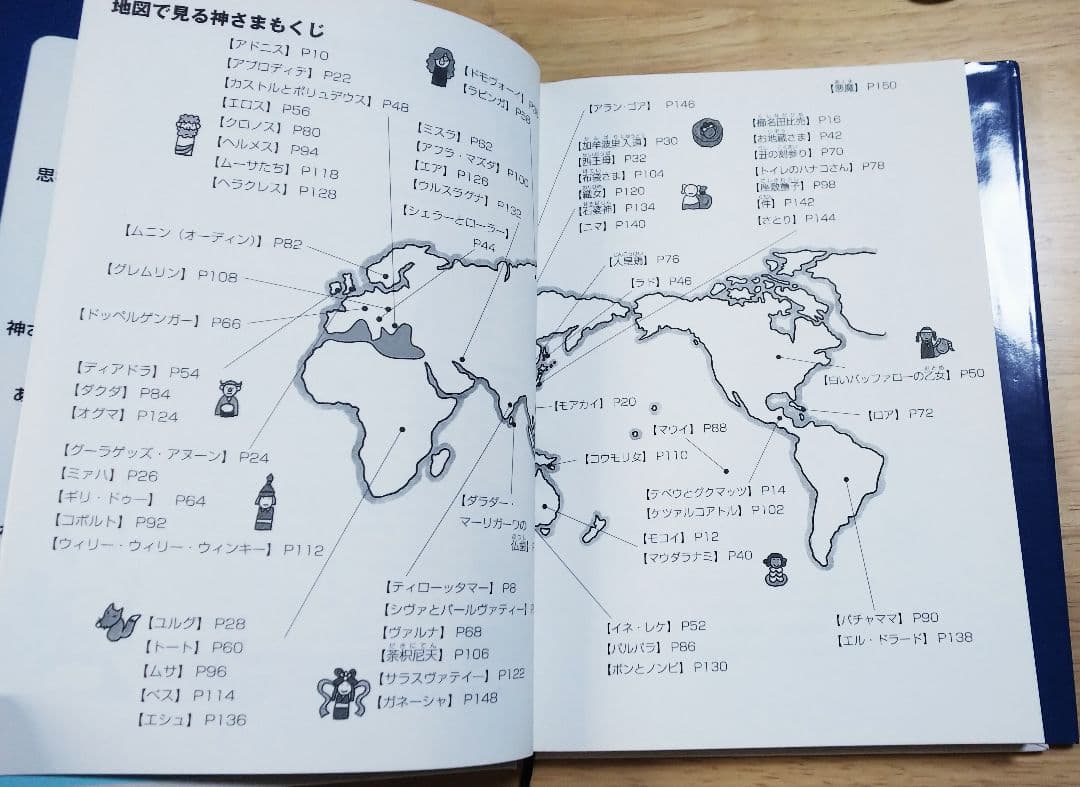 地図で見る神さまもくじ
【アドニス】 P10
【アプロディテ】 P22
【カストルとポリュデウス】 P48
【エロス】 P56
【クロノス】 P80
【ヘルメス】 P94
【ムーサたち】 P118
【ヘラクレス】 P128
【ドモヴォーイ】
【ラピンガ】
【ミスラ】 P62
【アフラ・マズダ】 P100
【エア】 P126
【ウルスラグナ】 P132
【シェラーとローラー】
P44
【ムニン（オーディン）】 P82
【グレムリン】 P108
【ドッペルゲンガー】 P66
【ディアドラ】 P54
【ダクダ】 P84
【オグマ】 P124
【グーラゲッズ・アヌーン】 P24
【ミァハ】 P26
【ギリ・ドゥー】 P64
【コボルト】 P92
【ウィリー・ウィリー・ウィンキー】 P112
【ダラダー・
マーリガーワの
仏歯】
【ユルグ】 P28
【トート】 P60
【ムサ】 P96
【ベス】 P114
【エシュ】 P136
【ティローッタマー】 P8
【シヴァとパールヴァティー】
【ヴァルナ】 P68
【荼枳尼天】 P106
【サラスヴァティー】 P122
【ガネーシャ】 P148
【悪魔】 P150
【アラン・ゴア】 P146
【加牟波理入道】 P30
【西王母】 P32
【布袋さま】 P104
【織女】 P120
【石婆神】 P134
【ニマ】 P140
【櫛名田比売】 P16
【お地蔵さま】 P42
【丑の刻参り】 P70
【トイレのハナコさん】 P78
【座敷童子】 P98
【件】 P142
【さとり】 P144
【人皇鶏】 P76
【ラド】 P46
【白いバッファローの乙女】 P50
【モアカイ】 P20
【マウイ】 P88
【ロア】 P72
【コウモリ女】 P110
【テペウとグクマッツ】 P14
【ケツァルコアトル】 P102
【モコイ】 P12
【マウダラナミ】 P40
【イネ・レケ】 P52
【バルバラ】 P86
【ボンとノンビ】 P130
【パチャママ】 P90
【エル・ドラード】 P138